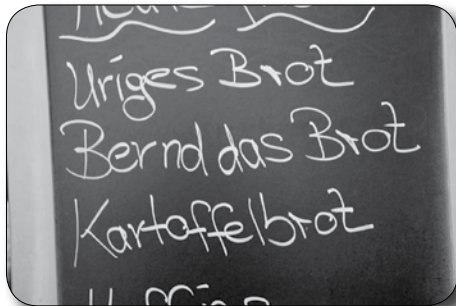 Uriges Brot
Bernd das Brot
Kartoffelbrot